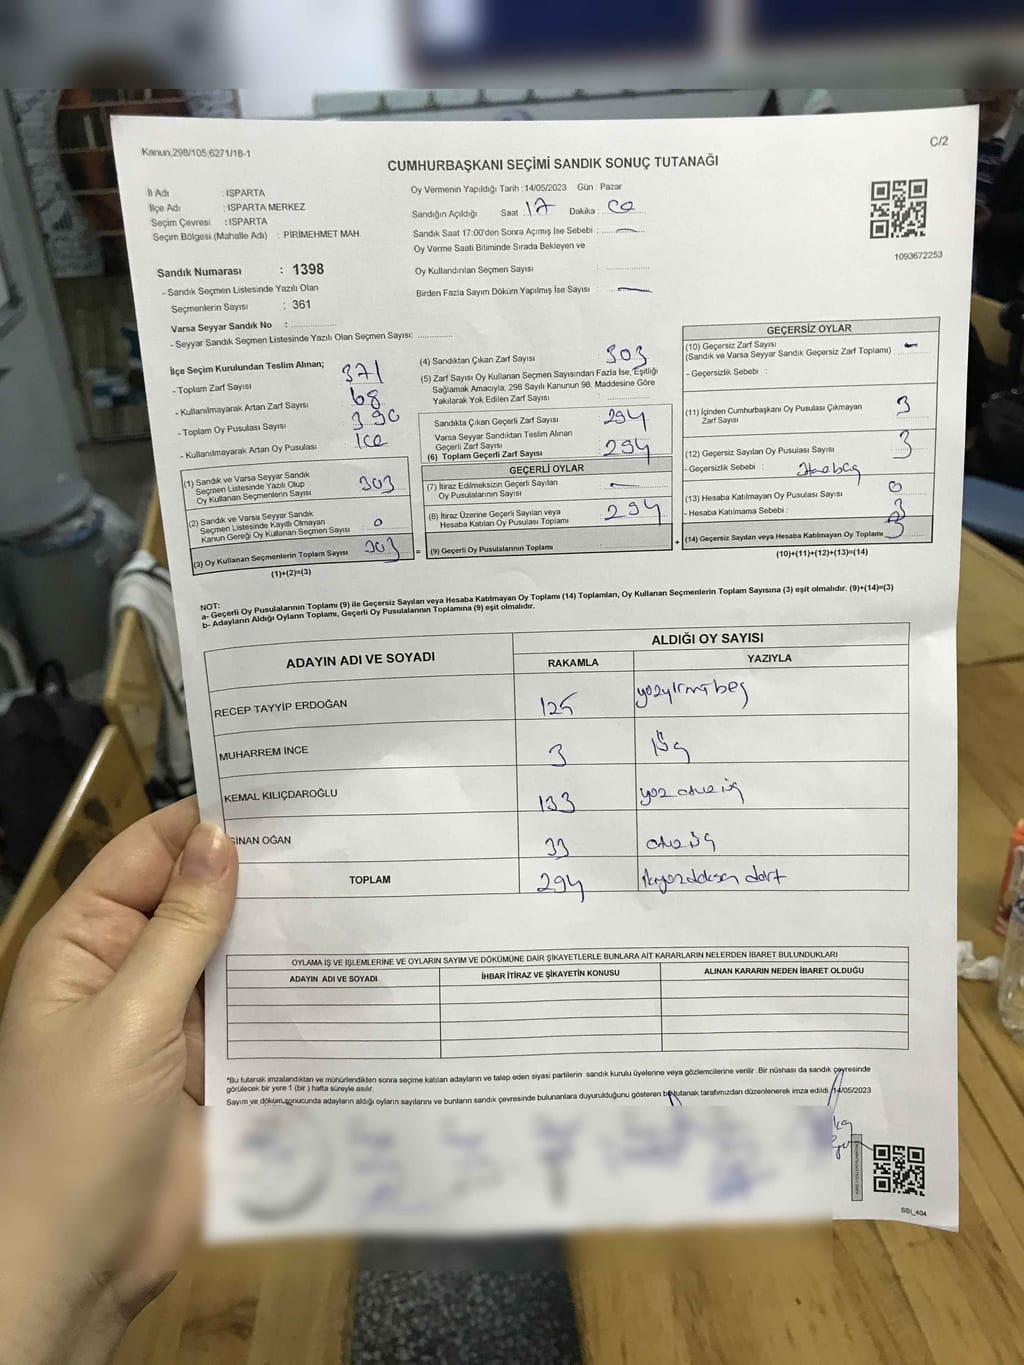 Kanun;298/105,6271/18-1
C/2
CUMHURBAŞKANI SEÇİMİ SANDIK SONUÇ TUTANAĞI
İl Adı : ISPARTA
İlçe Adı : ISPARTA MERKEZ
Seçim Çevresi : ISPARTA
Seçim Bölgesi (Mahalle Adı) : PİRİMEHMET MAH.
Oy Vermenin Yapıldığı Tarih : 14/05/2023 Gün : Pazar
Sandığın Açıldığı Saat : 17 Dakika : 00
Sandık Saat 17:00'den Sonra Açımış İse Sebebi : —
Oy Verme Saati Bitiminde Sırada Bekleyen ve
Oy Kullandırılan Seçmen Sayısı :
Birden Fazla Sayım Döküm Yapılmış İse Sayısı : —
1093672253
Sandık Numarası : 1398
- Sandık Seçmen Listesinde Yazılı Olan
Seçmenlerin Sayısı : 361
Varsa Seyyar Sandık No :
- Seyyar Sandık Seçmen Listesinde Yazılı Olan Seçmen Sayısı:
İlçe Seçim Kurulundan Teslim Alınan;
- Toplam Zarf Sayısı : 371
- Kullanılmayarak Artan Zarf Sayısı : 68
- Toplam Oy Pusulası Sayısı : 390
- Kullanılmayarak Artan Oy Pusulası :
(1) Sandık ve Varsa Seyyar Sandık
Seçmen Listesinde Yazılı Olup
Oy Kullanan Seçmenlerin Sayısı 303
(2) Sandık ve Varsa Seyyar Sandık
Seçmen Listesinde Kayıtlı Olmayan
Kanun Gereği Oy Kullanan Seçmen Sayısı 0
(3) Oy Kullanan Seçmenlerin Toplam Sayısı 303
(1)+(2)=(3)
(4) Sandıktan Çıkan Zarf Sayısı : 303
(5) Zarf Sayısı Oy Kullanan Seçmen Sayısından Fazla İse, Eşitliği
Sağlamak Amacıyla; 298 Sayılı Kanunun 98. Maddesine Göre
Yakılarak Yok Edilen Zarf Sayısı :
Sandıkta Çıkan Geçerli Zarf Sayısı 294
Varsa Seyyar Sandıktan Teslim Alınan
Geçerli Zarf Sayısı
(6) Toplam Geçerli Zarf Sayısı 294
GEÇERLİ OYLAR
(7) İtiraz Edilmeksizin Geçerli Sayılan
Oy Pusulalarının Sayısı —
(8) İtiraz Üzerine Geçerli Sayılan veya
Hesaba Katılan Oy Pusulası Toplamı 294
= (9) Geçerli Oy Pusulalarının Toplamı +
GEÇERSİZ OYLAR
(10) Geçersiz Zarf Sayısı —
(Sandık ve Varsa Seyyar Sandık Geçersiz Zarf Toplamı)
- Geçersizlik Sebebi :
(11) İçinden Cumhurbaşkanı Oy Pusulası Çıkmayan
Zarf Sayısı 3
(12) Geçersiz Sayılan Oy Pusulası Sayısı 3
- Geçersizlik Sebebi :
(13) Hesaba Katılmayan Oy Pusulası Sayısı 0
- Hesaba Katılmama Sebebi : 3
(14) Geçersiz Sayılan veya Hesaba Katılmayan Oy Toplamı 3
(10)+(11)+(12)+(13)=(14)
NOT:
a- Geçerli Oy Pusulalarının Toplamı (9) ile Geçersiz Sayılan veya Hesaba Katılmayan Oy Toplamı (14) Toplamları, Oy Kullanan Seçmenlerin Toplam Sayısına (3) eşit olmalıdır. (9)+(14)=(3)
b- Adayların Aldığı Oyların Toplamı, Geçerli Oy Pusulalarının Toplamına (9) eşit olmalıdır.
ADAYIN ADI VE SOYADI
ALDIĞI OY SAYISI
RAKAMLA YAZIYLA
RECEP TAYYİP ERDOĞAN 125 yüzyirmibeş
MUHARREM İNCE 3 üç
KEMAL KILIÇDAROĞLU 133 yüz otuz üç
SİNAN OĞAN 33 otuz üç
TOPLAM 294 ikiyüzdoksan dört
OYLAMA İŞ VE İŞLEMLERİNE VE OYLARIN SAYIM VE DÖKÜMÜNE DAİR ŞİKAYETLERLE BUNLARA AİT KARARLARIN NELERDEN İBARET BULUNDUKLARI
ADAYIN ADI VE SOYADI İHBAR İTİRAZ VE ŞİKAYETİN KONUSU ALINAN KARARIN NEDEN İBARET OLDUĞU
*Bu tutanak imzalandıktan ve mühürlendikten sonra seçime katılan adayların ve talep eden siyasi partilerin sandık kurulu üyelerine veya gözlemcilerine verilir .Bir nüshası da sandık çevresinde
görülecek bir yere 1 (bir ) hafta süreyle asılır.
Sayım ve döküm sonucunda adayların aldığı oyların sayılarını ve bunların sandık çevresinde bulunanlara duyurulduğunu gösteren bu tutanak tarafımızdan düzenlenerek imza edildi. 14/05/2023
SSI_404